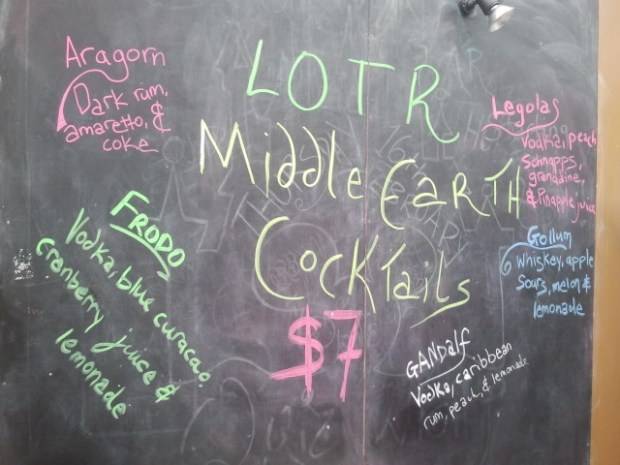 LOTR
Middle EaRTH
CocKTails
$7
Aragorn
Dark rum,
amaretto, &
coke
Legolas
Vodka, peach
Schnapps,
grenadine,
& Pinapple juice
FRODO
Vodka, blue curacao,
cranberry juice &
lemonade
Gollum
Whiskey, apple
Sours, melon &
lemonade
GANDalf
Vodka, caribbean
rum, peach, & lemonade